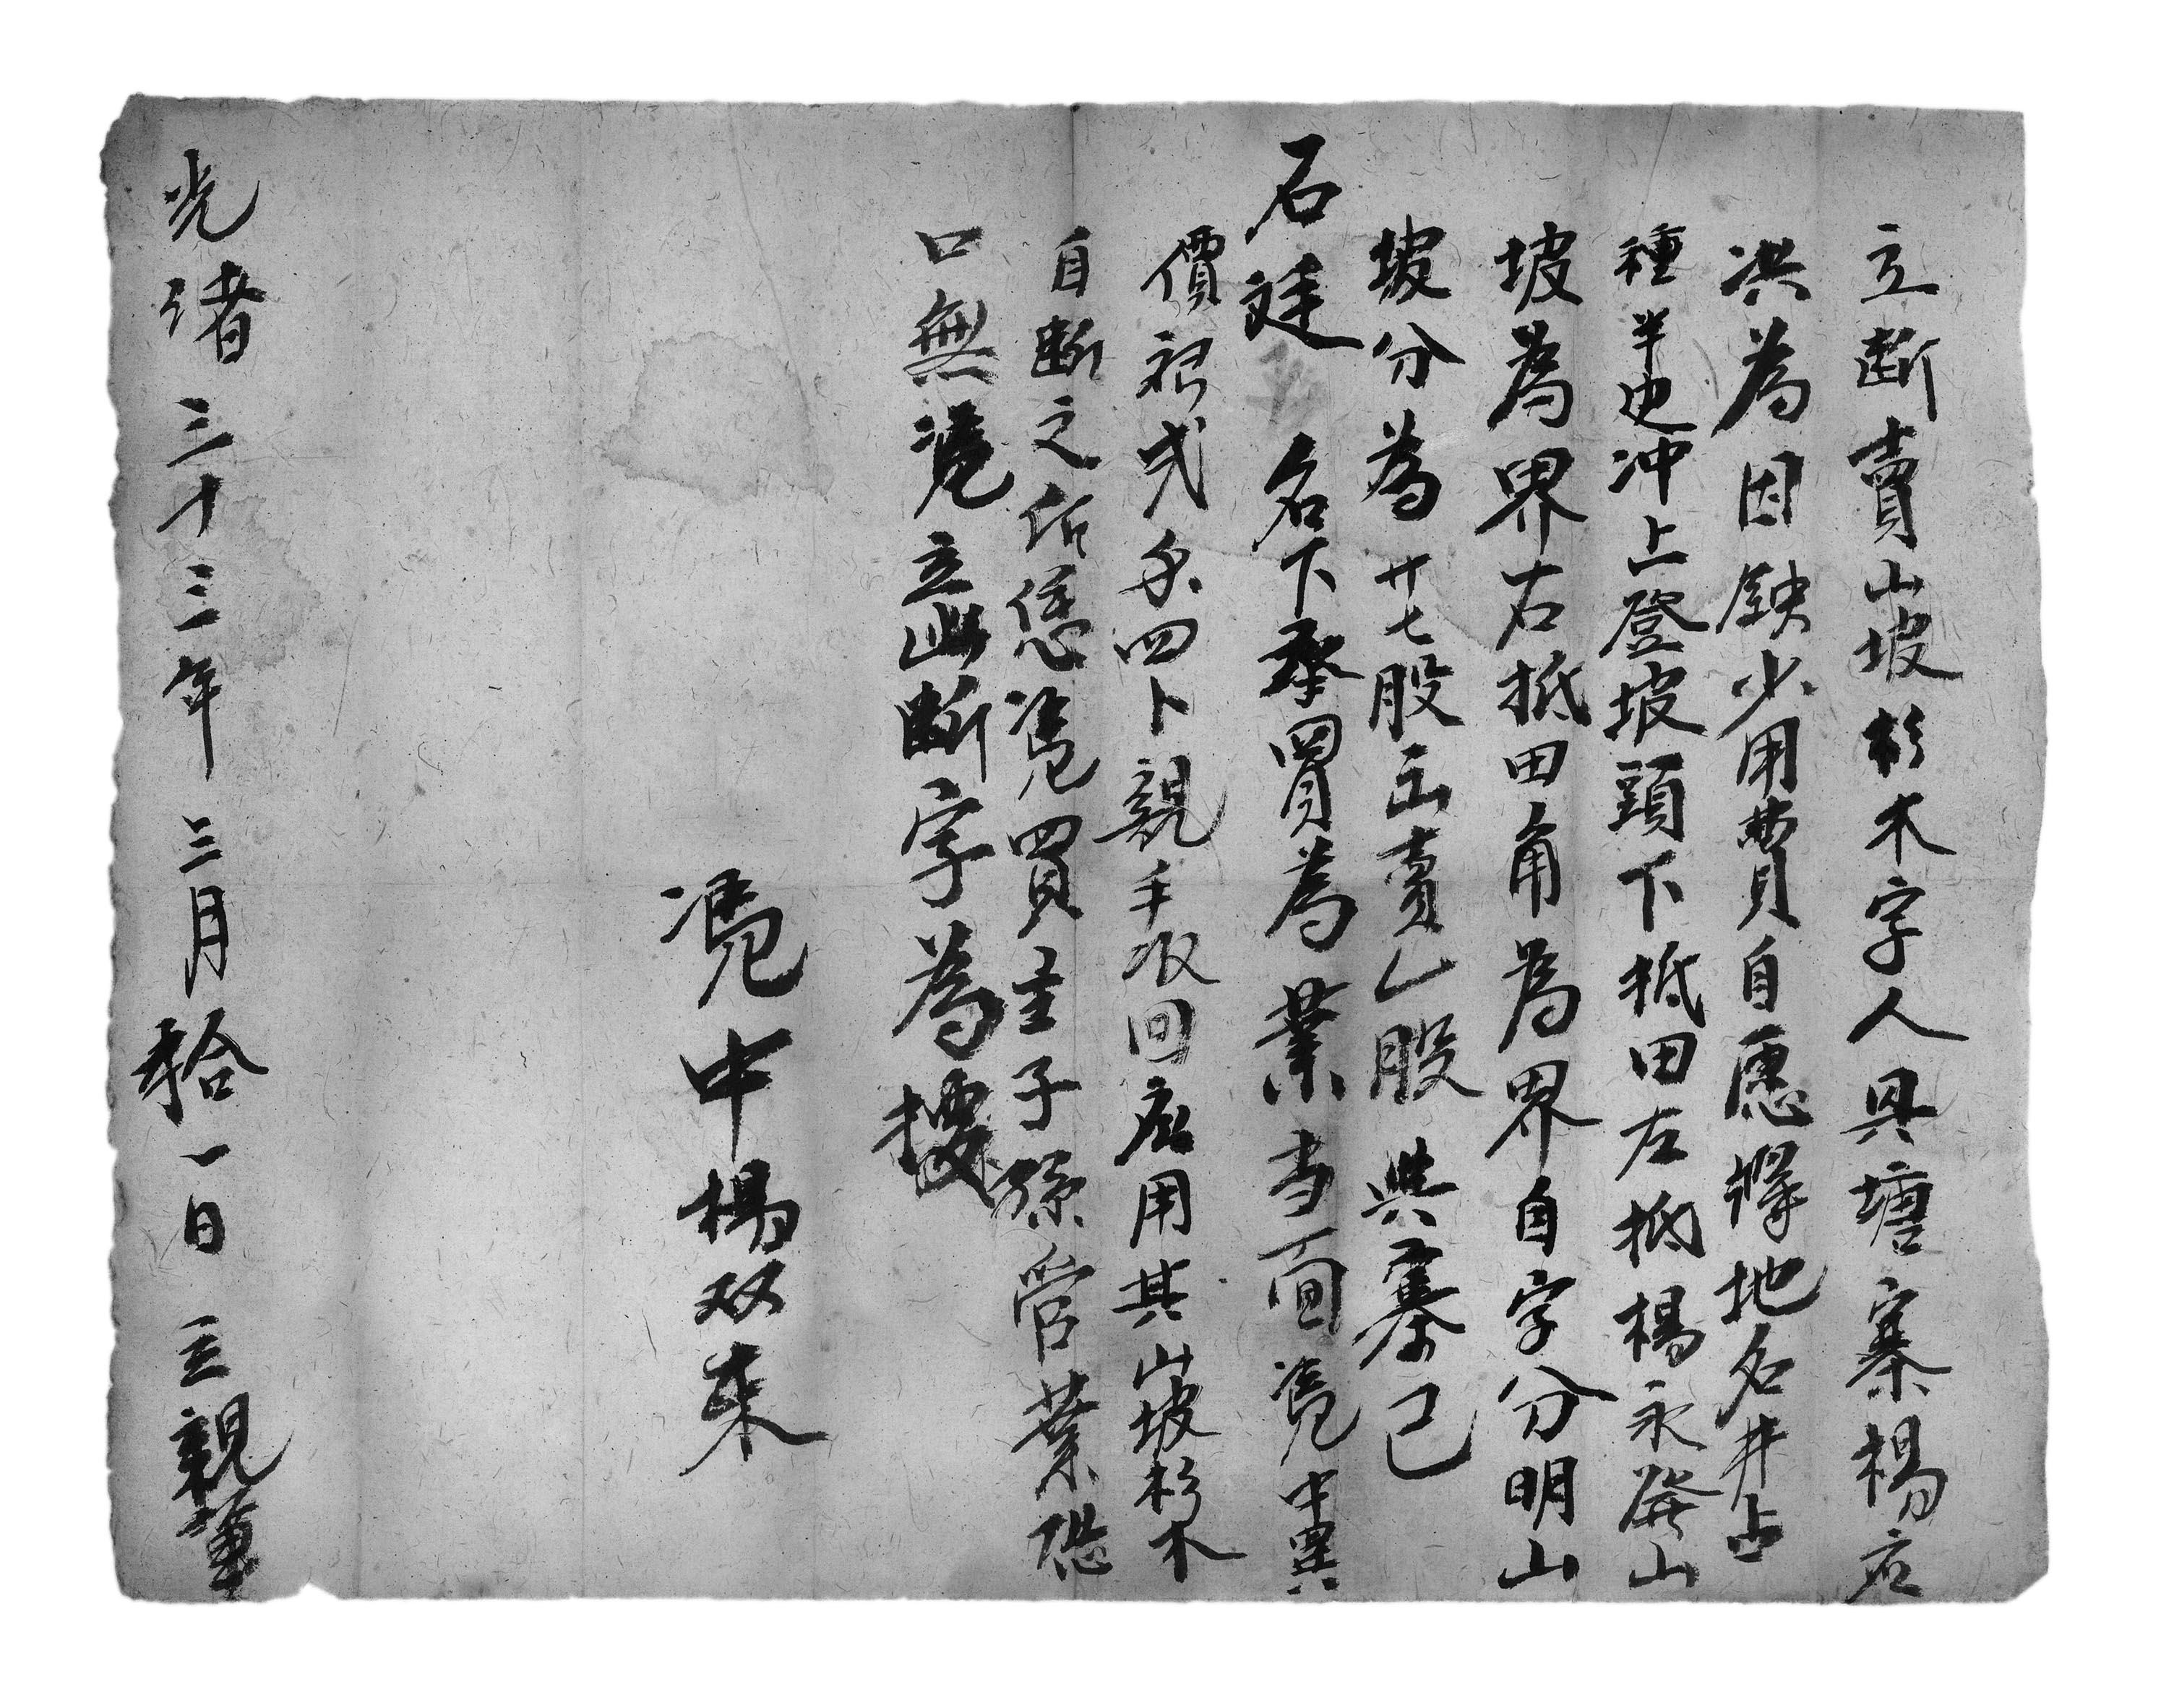 立斷賣山坡杉木字人具塘寨楊應
洪為因缺少用費自愿將地名井占
種半边冲上登坡頭下抵田左抵楊永發山
坡為界右抵田角為界自字分明山
坡分為廿七股出賣乚股與寨己
石廷 名下承買為業当面凭中異
價銀弍錢四卜親手收回應用其山坡杉木
自斷之後恁凭買主子孫管業恐
口無凭立此斷字為據
凭中楊双來
光緒三十三年三月拾一日 立親筆